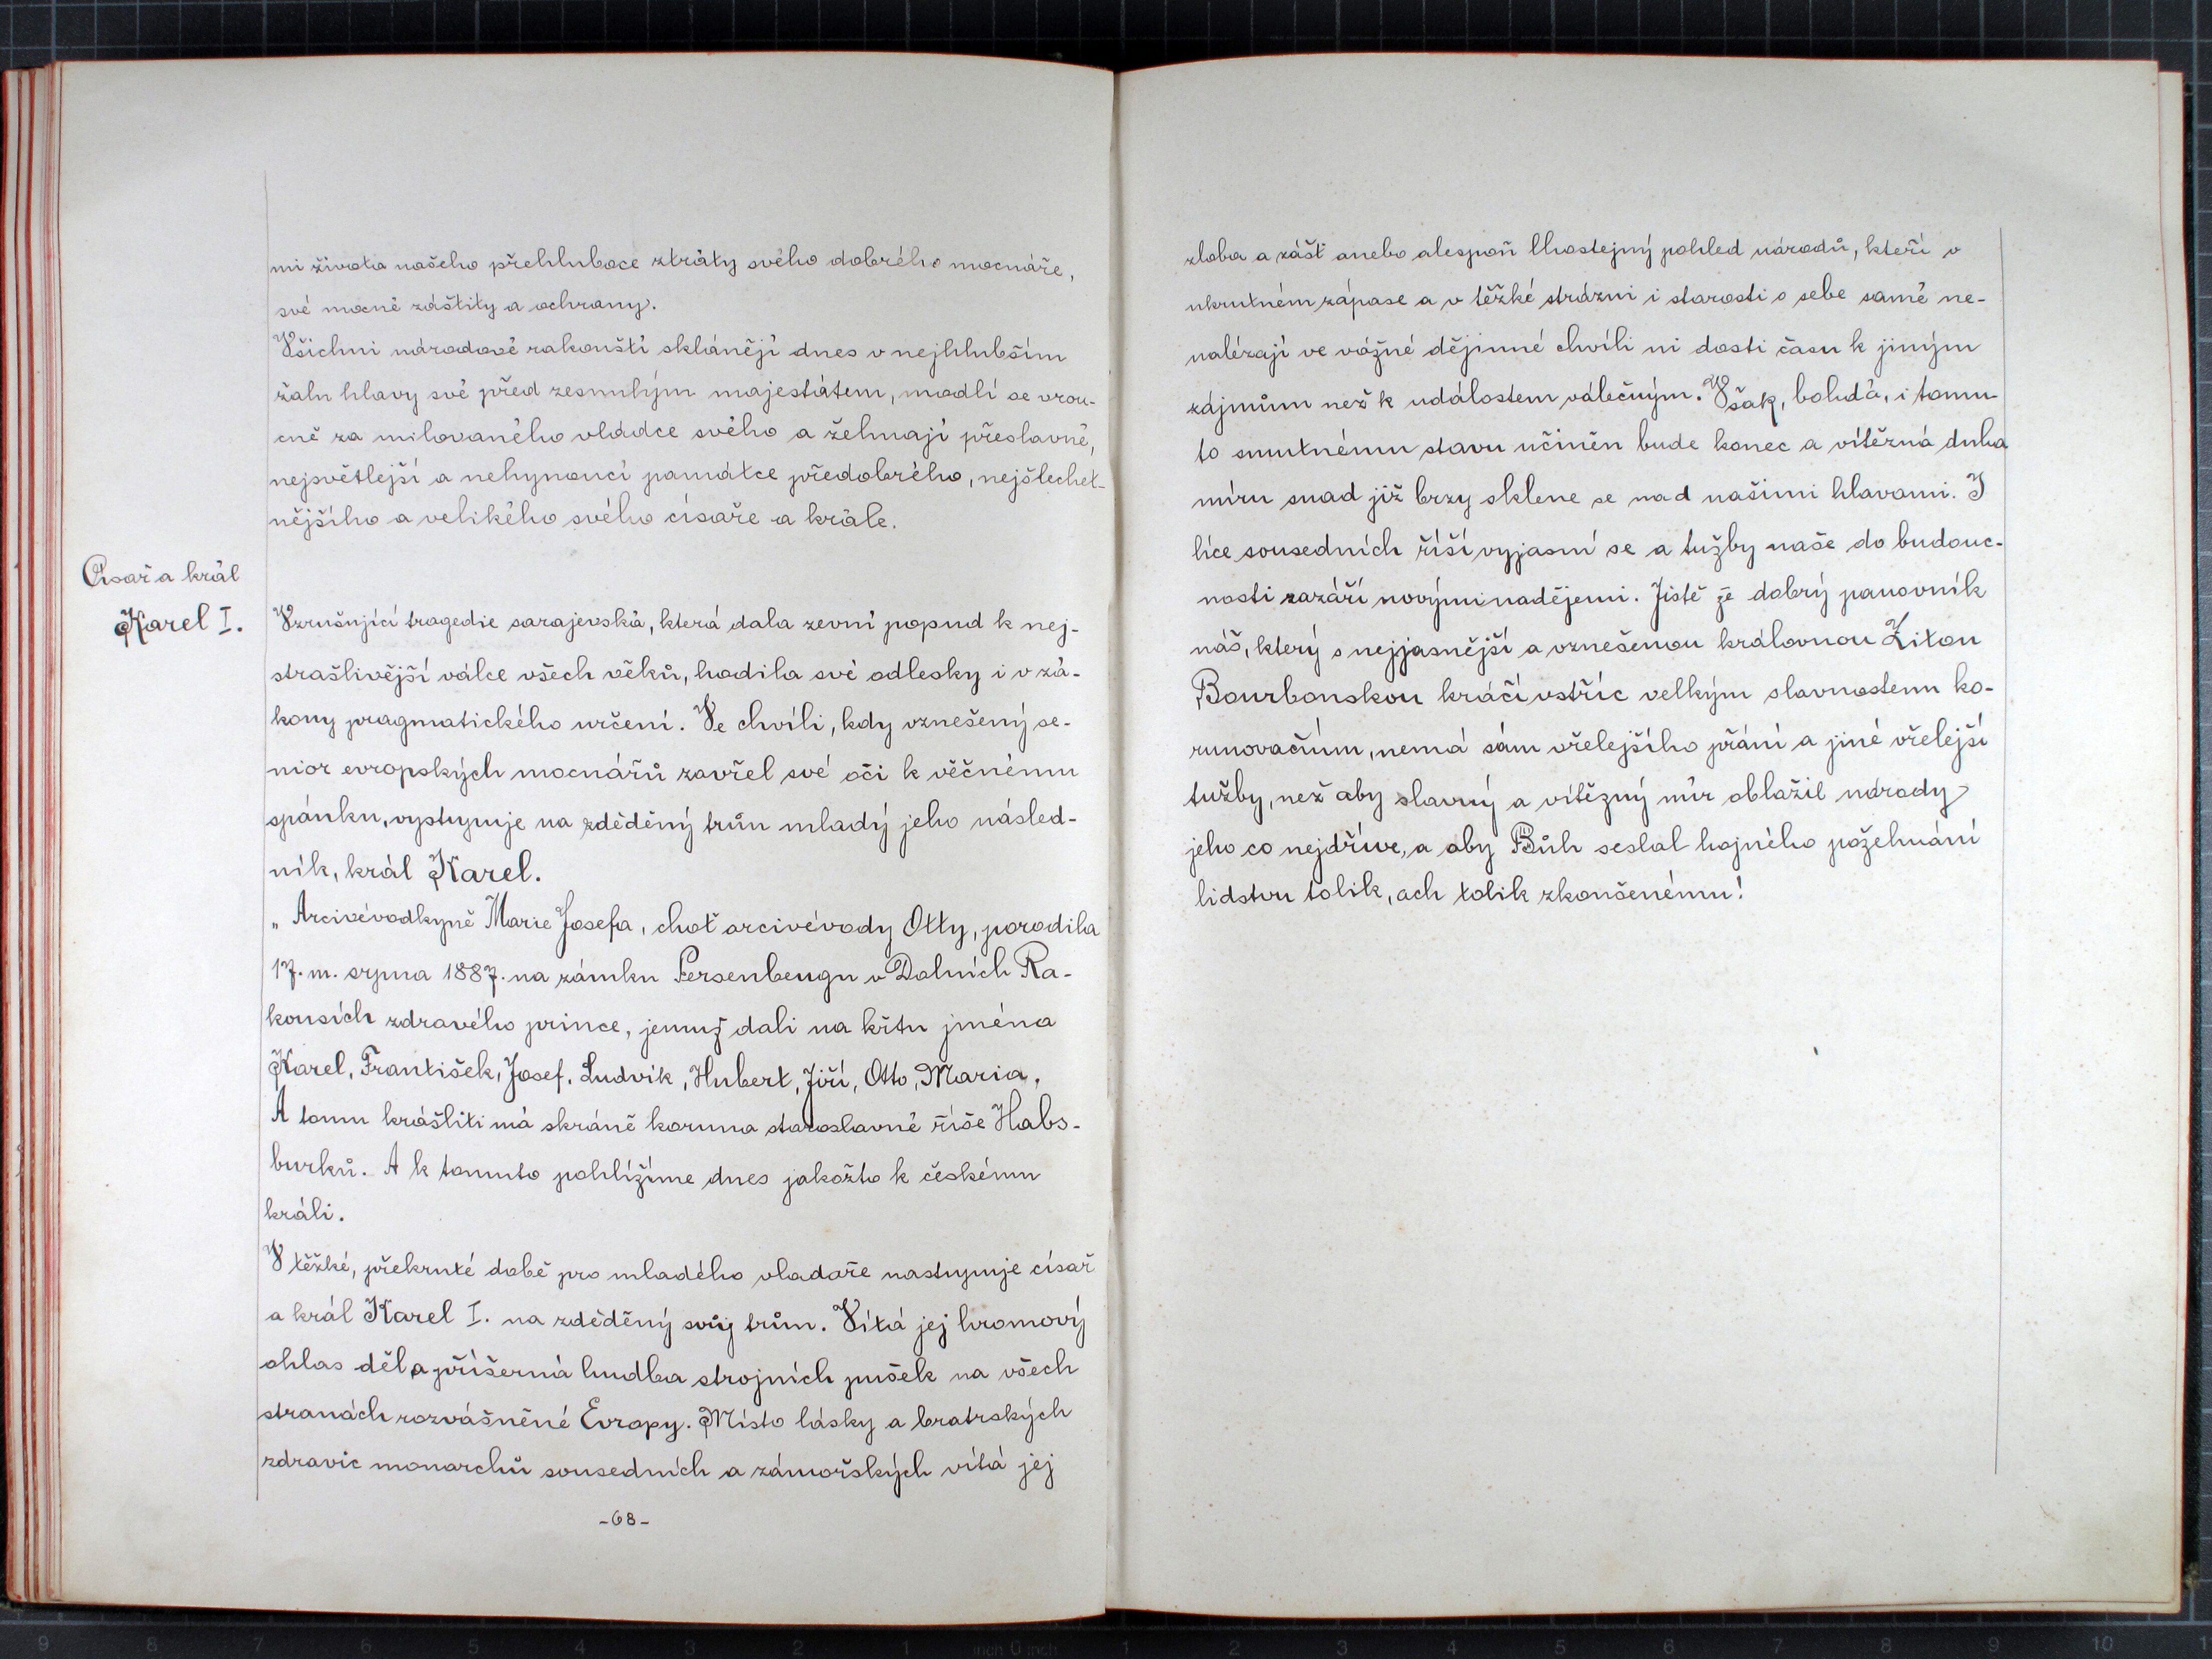 mi života našeho přehluboce ztráty svého dobrého mocnáře,
své mocné záštity a ochrany.
Všichni národové rakouští sklánějí dnes v nejhlubším
žalu hlavy své před zesnulým majestátem, modlí se vrou-
cně za milovaného vládce svého a žehnají přeslavné,
nejsvětlejší a nehynoucí památce předobrého, nejšlechet-
nějšího a velikého svého císaře a krále.
Císař a král
Karel I.
Vzrušující tragedie sarajevská, která dala zevní popud k nej-
strašlivější válce všech věků, hodila své odlesky i v zá-
kony pragmatického určení. Ve chvíli, kdy vznešený se-
nior evropských mocnářů zavřel své oči k věčnému
spánku, vystupuje na zděděný trůn mladý jeho násled-
ník, král Karel.
„Arcivévodkyně Marie Josefa, choť arcivévody Otty, porodila
17. m. srpna 1887. na zámku Persenbeugu v Dolních Ra-
kousích zdravého prince, jemuž dali na křtu jména
Karel, František, Josef, Ludvík, Hubert, Jiří, Otto, Maria.
A tomu krášliti má skráně koruna staroslavné říše Habs-
burků. A k tomuto pohlížíme dnes jakožto k českému
králi.
V těžké, překruté době pro mladého vladaře nastupuje císař
a král Karel I. na zděděný svůj trůn. Vítá jej hromový
ohlas děl a příšerná hudba strojních pušek na všech
stranách rozvášněné Evropy. Místo lásky a bratrských
zdravic monarchů sousedních a zámořských vítá jej
-68-
zloba a zášť anebo alespoň lhostejný pohled národů, kteří v
ukrutném zápase a v těžké strázni i starosti o sebe samé ne-
nalézají ve vážné dějinné chvíli ni dosti času k jiným
zájmům než k událostem válečným. Však, bohdá, i tomu-
to smutnému stavu učiněn bude konec a vítězná duha
míru snad již brzy sklene se nad našimi hlavami. I
líce sousedních říší vyjasní se a tužby naše do budouc-
nosti zazáří novými nadějemi. Jistě že dobrý panovník
náš, který s nejjasnější a vznešenou královnou Zitou
Bourbonskou kráčí vstříc velkým slavnostem ko-
runovačním, nemá sám vřelejšího přání a jiné vřelejší
tužby, než aby slavný a vítězný mír oblažil národy
jeho co nejdříve, a aby Bůh seslal hojného požehnání
lidstvu tolik, ach tolik zkoušenému!